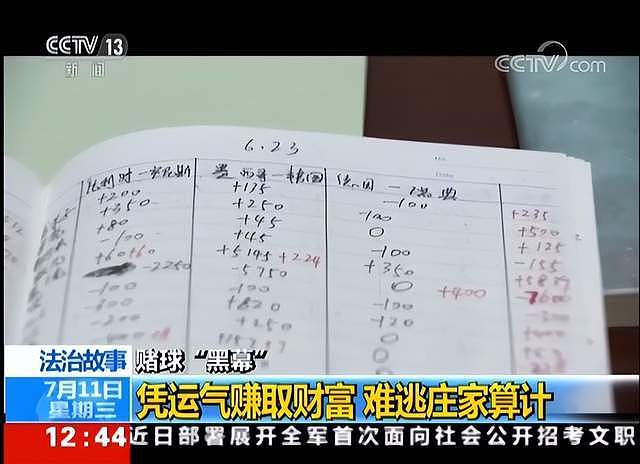 CCTV 13
新闻
CCTV.com
6.23
比利时一突尼斯 墨西哥一韩国 德国一瑞典
+200 +175 -100
+350 +250 -100 +235
+80 +45 0 +500
-100 +45 -100 +125
+60+60 +5195+224 +350 -155
-2250 -5750 0
-100 -100 -100 +400 -7600
+820 -100
-200 +250 -120
法治故事 赌球“黑幕”
7月11日
星期三
凭运气赚取财富 难逃庄家算计
12:44 近日部署展开全军首次面向社会公开招考文职